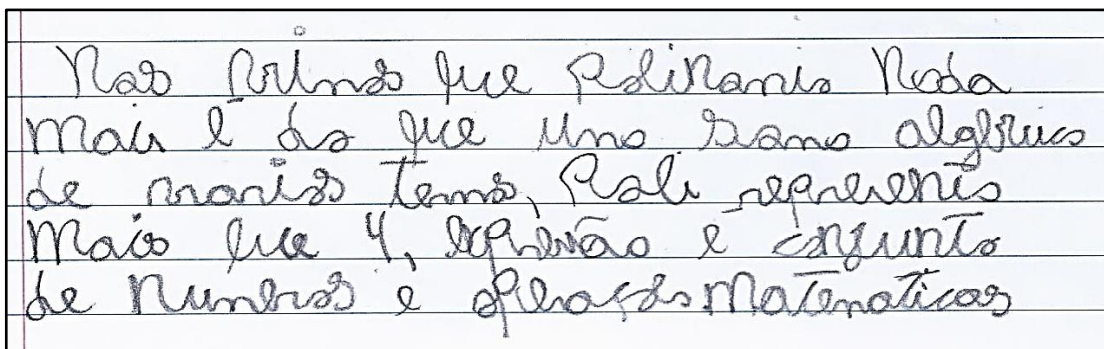 Nas que Polinomio Nada
mais é do que uma soma algébrica
de termos, Poli representa
Mais que 4, expressão é conjunto
de Numeros e operações Matematicas